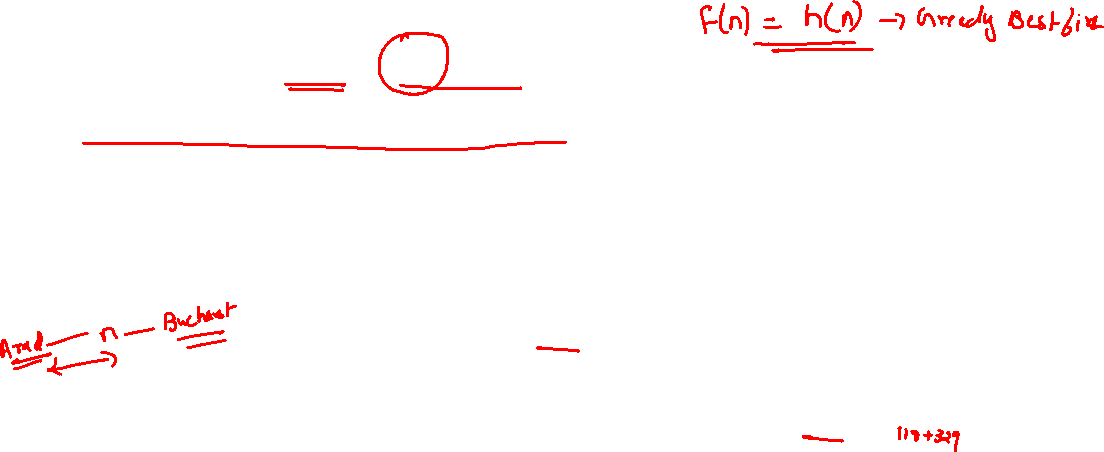 F(n) = h(n) → Greedy Best fir
Arad — n — Bucharest
118+329